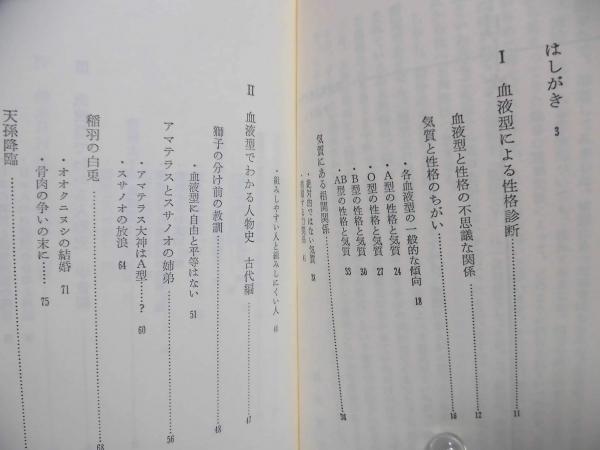 はしがき 3
I 血液型による性格診断 11
血液型と性格の不思議な関係 12
気質と性格のちがい 16
・各血液型の一般的な傾向 18
・A型の性格と気質 24
・O型の性格と気質 27
・B型の性格と気質 30
・AB型の性格と気質 33
気質にある相関関係 36
・絶対的ではない気質 38
・組みしやすい人と組みしにくい人 40
II 血液型でわかる人物史 古代編 47
獅子の分け前の教訓 48
・血液型に自由と平等はない 51
アマテラスとスサノオの姉弟 56
・アマテラス大神はA型……? 60
・スサノオの放浪 64
稲羽の白兎 68
・オオクニヌシの結婚 71
・骨肉の争いの末に…… 75
天孫降臨